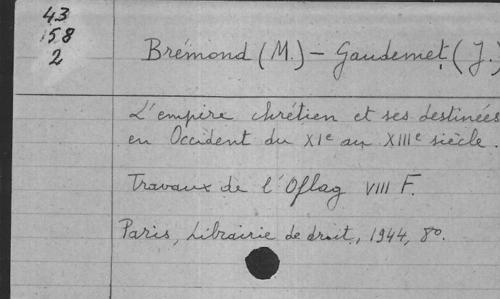 43
158
2
Brémond (M.) – Gaudemet, (J.)
L'empire chrétien et ses destinées
en Occident du XIe au XIIIe siècle.
Travaux de l'Oflag VIII F.
Paris, Librairie de droit, 1944, 8º.